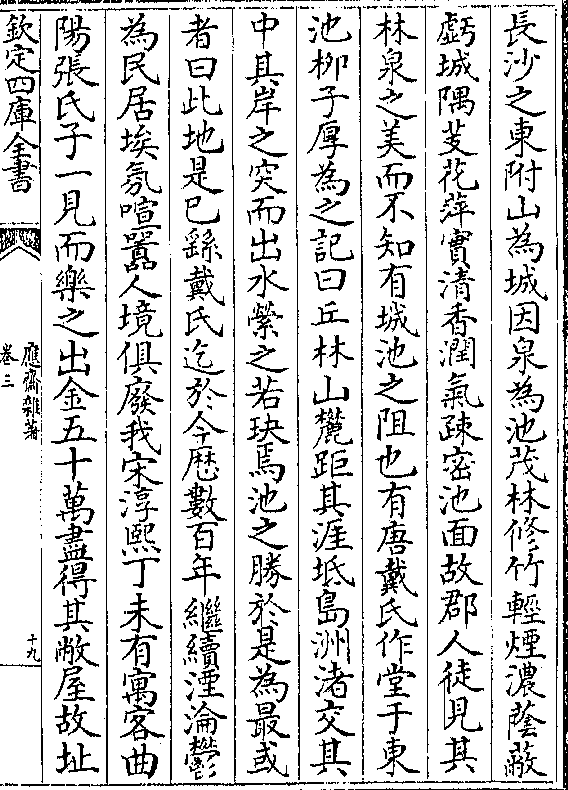 長沙之東附山為城因泉為池茂林修竹輕煙濃蔭蔽
虧城隅芰花萍實清香潤氣疎密池面故郡人徒見其
林泉之美而不知有城池之阻也有唐戴氏作堂于東
池柳子厚為之記曰丘林山麓距其涯坻島洲渚交其
中其岸之突而出水縈之若玦焉池之勝於是為最或
者曰此地是已繇戴氏迄於今歴數百年繼續湮淪鬱
為民居埃氛喧囂人境俱廢我宋淳熙丁未有寓客曲
陽張氏子一見而樂之出金五十萬盡得其敝屋故址
欽定四庫全書
應齋雜著
卷三
十九